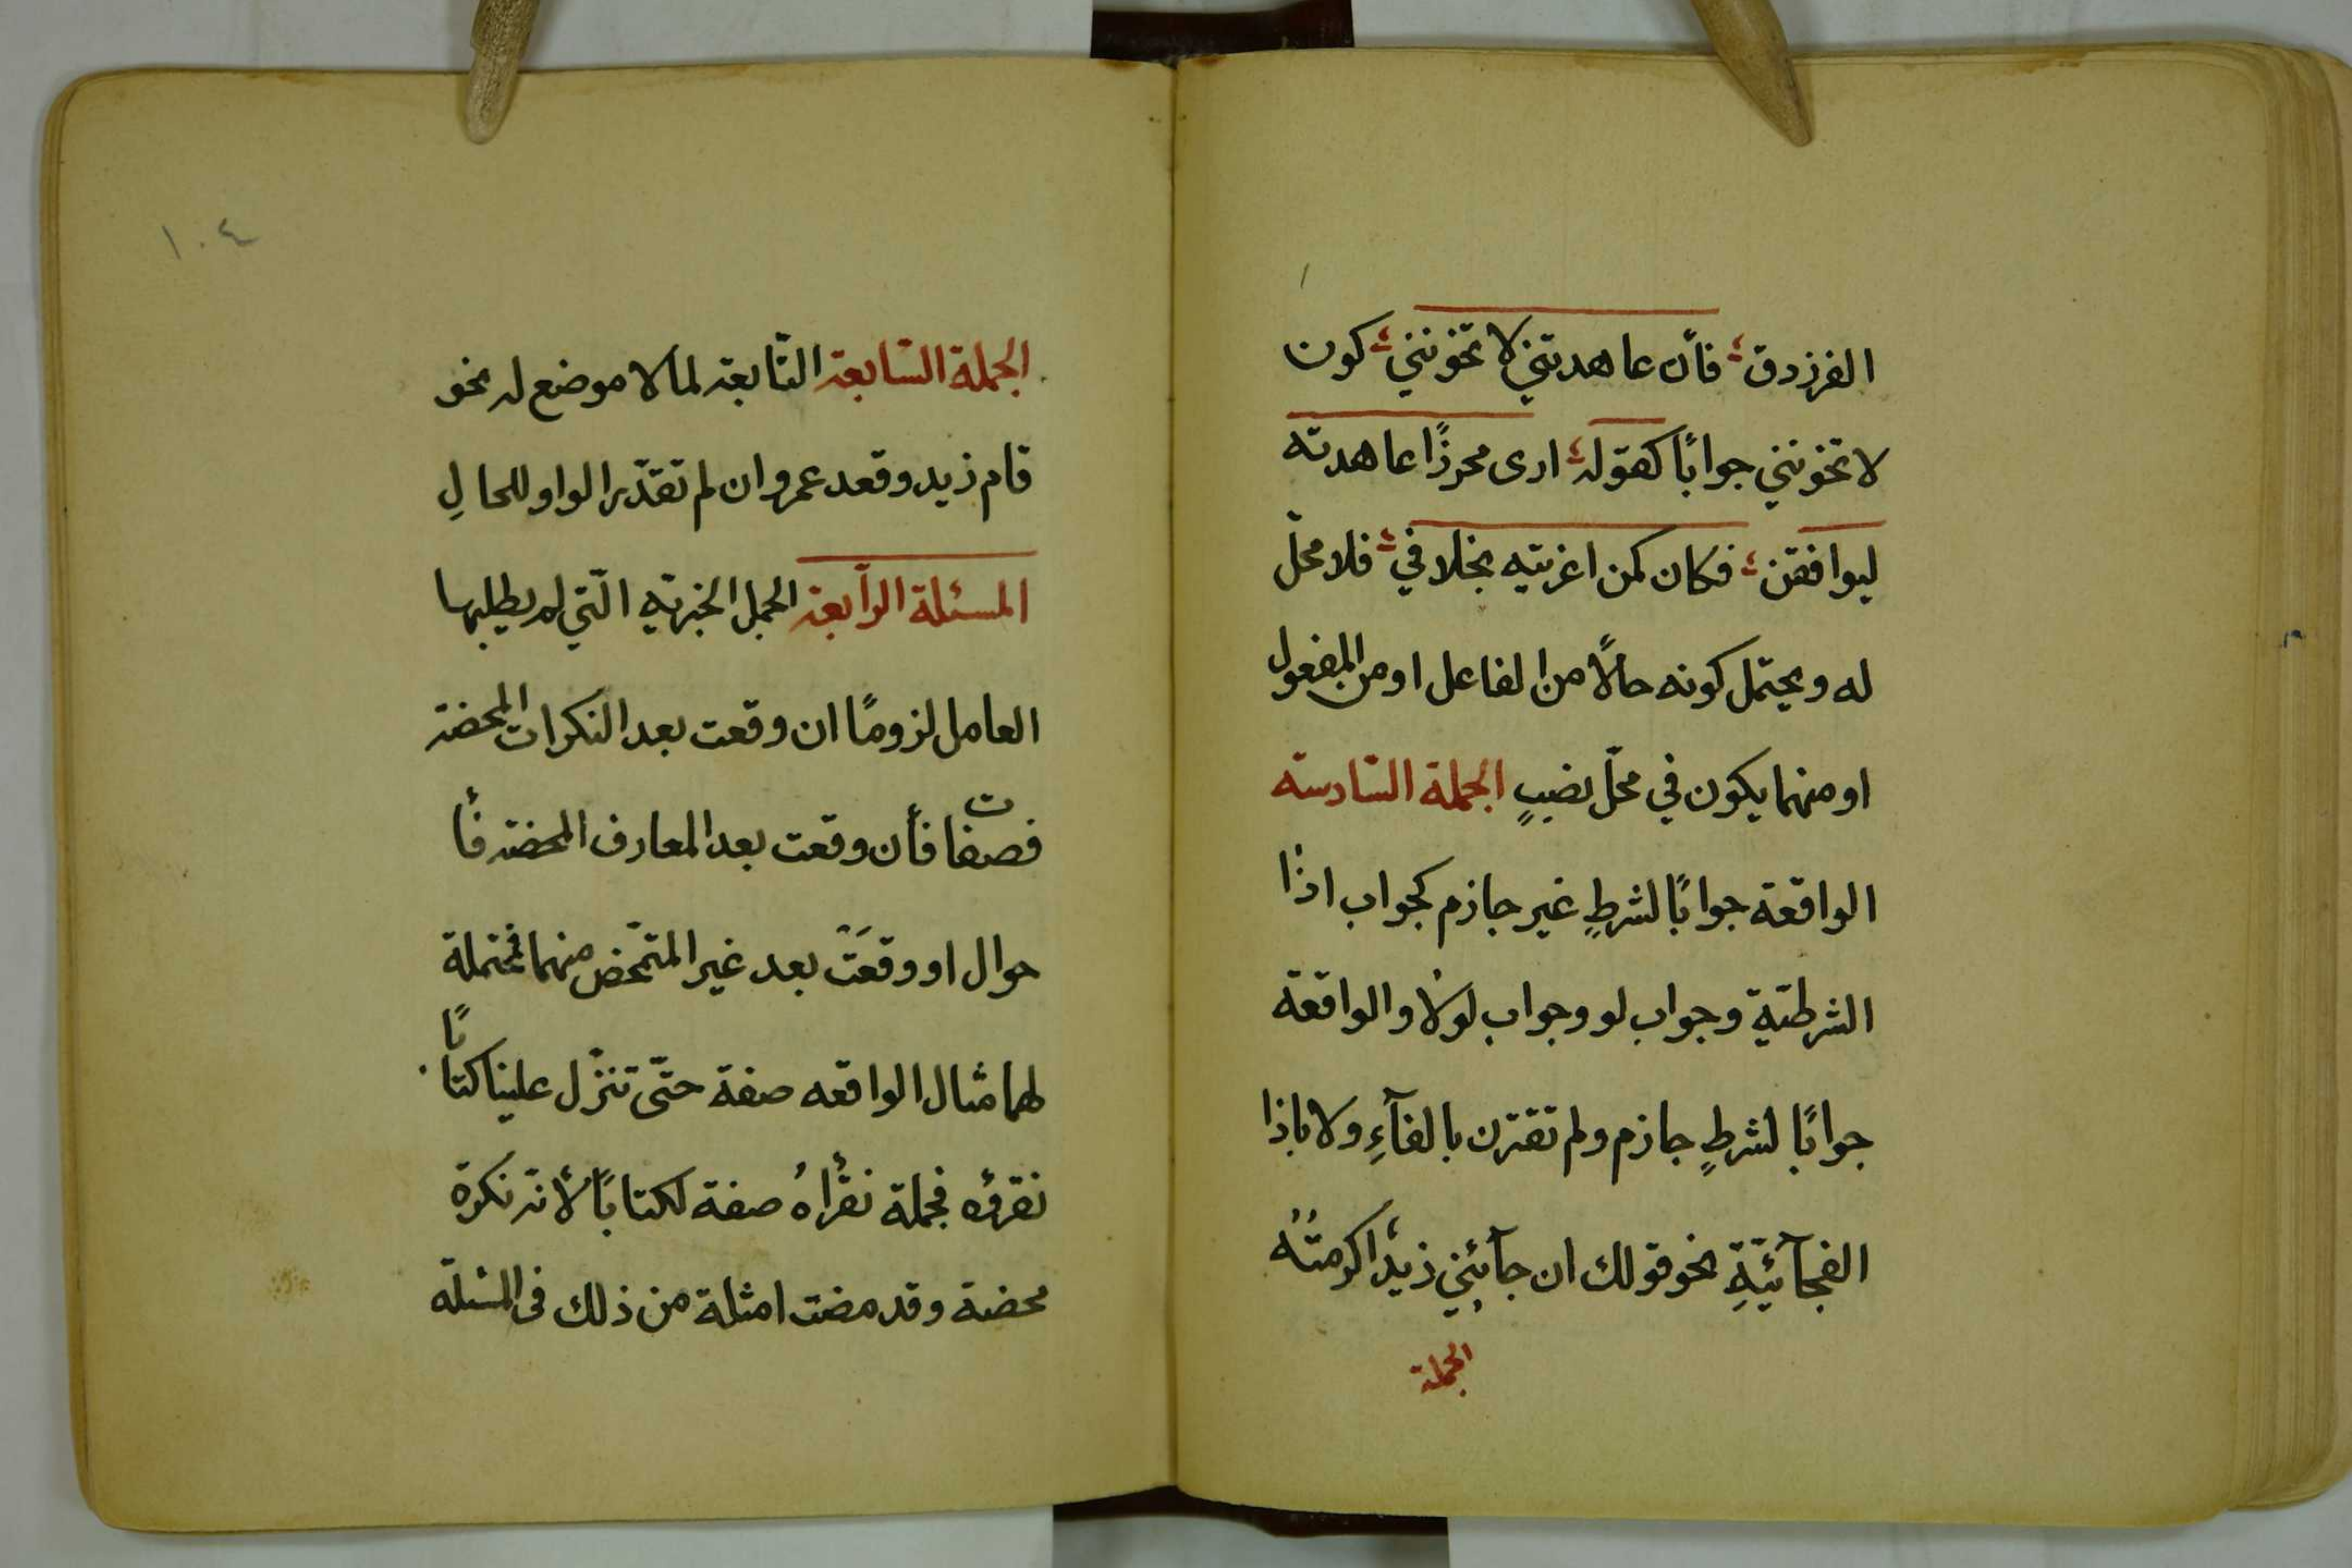 الفرزدق ؛ فأن عاهدتني لا تخونني ؛ كون
لا تخونني جوابًا كقوله ؛ ارى محرزًا عاهدته
ليوافقن ؛ فكان كمن اغريته بخلافي ؛ فلا محلّ
له ويحتمل كونه حالًا من الفاعل او من المفعول
او منهما يكون في محلّ نصبٍ الجملة السّادسة
الواقعة جوابًا لشرطٍ غير جازم كجواب اذا
الشرطيّة وجواب لو وجواب لولا والواقعة
جوابًا لشرطٍ جازم ولم تقترن بالفآءِ ولا باذا
الفجآئيّةِ نحو قولك ان جآئني زيدٌ اكرمتُه
الجملة
١٠٤
الجملة السّابعة التّابعة لما لا موضع له نحو
قام زيد وقعد عمرو ان لم تقدّر الواو للحالِ
المسئلة الرّابعة الجمل الخبريّه الّتي لم يطلبها
العامل لزومًا ان وقعت بعد النكرات المحضة
فصفات فأن وقعت بعد المعارف المحضة فأ
حوال او وقعَتْ بعد غير المتمّحض منهما فمحتملة
لهما مثال الواقعه صفة حتّى تنزّل علينا كتابًا
نقرؤه فجملة نقرأهُ صفة لكتابًا لأنّه نكرة
محضة وقد مضت امثلة من ذلك فى المسئلة